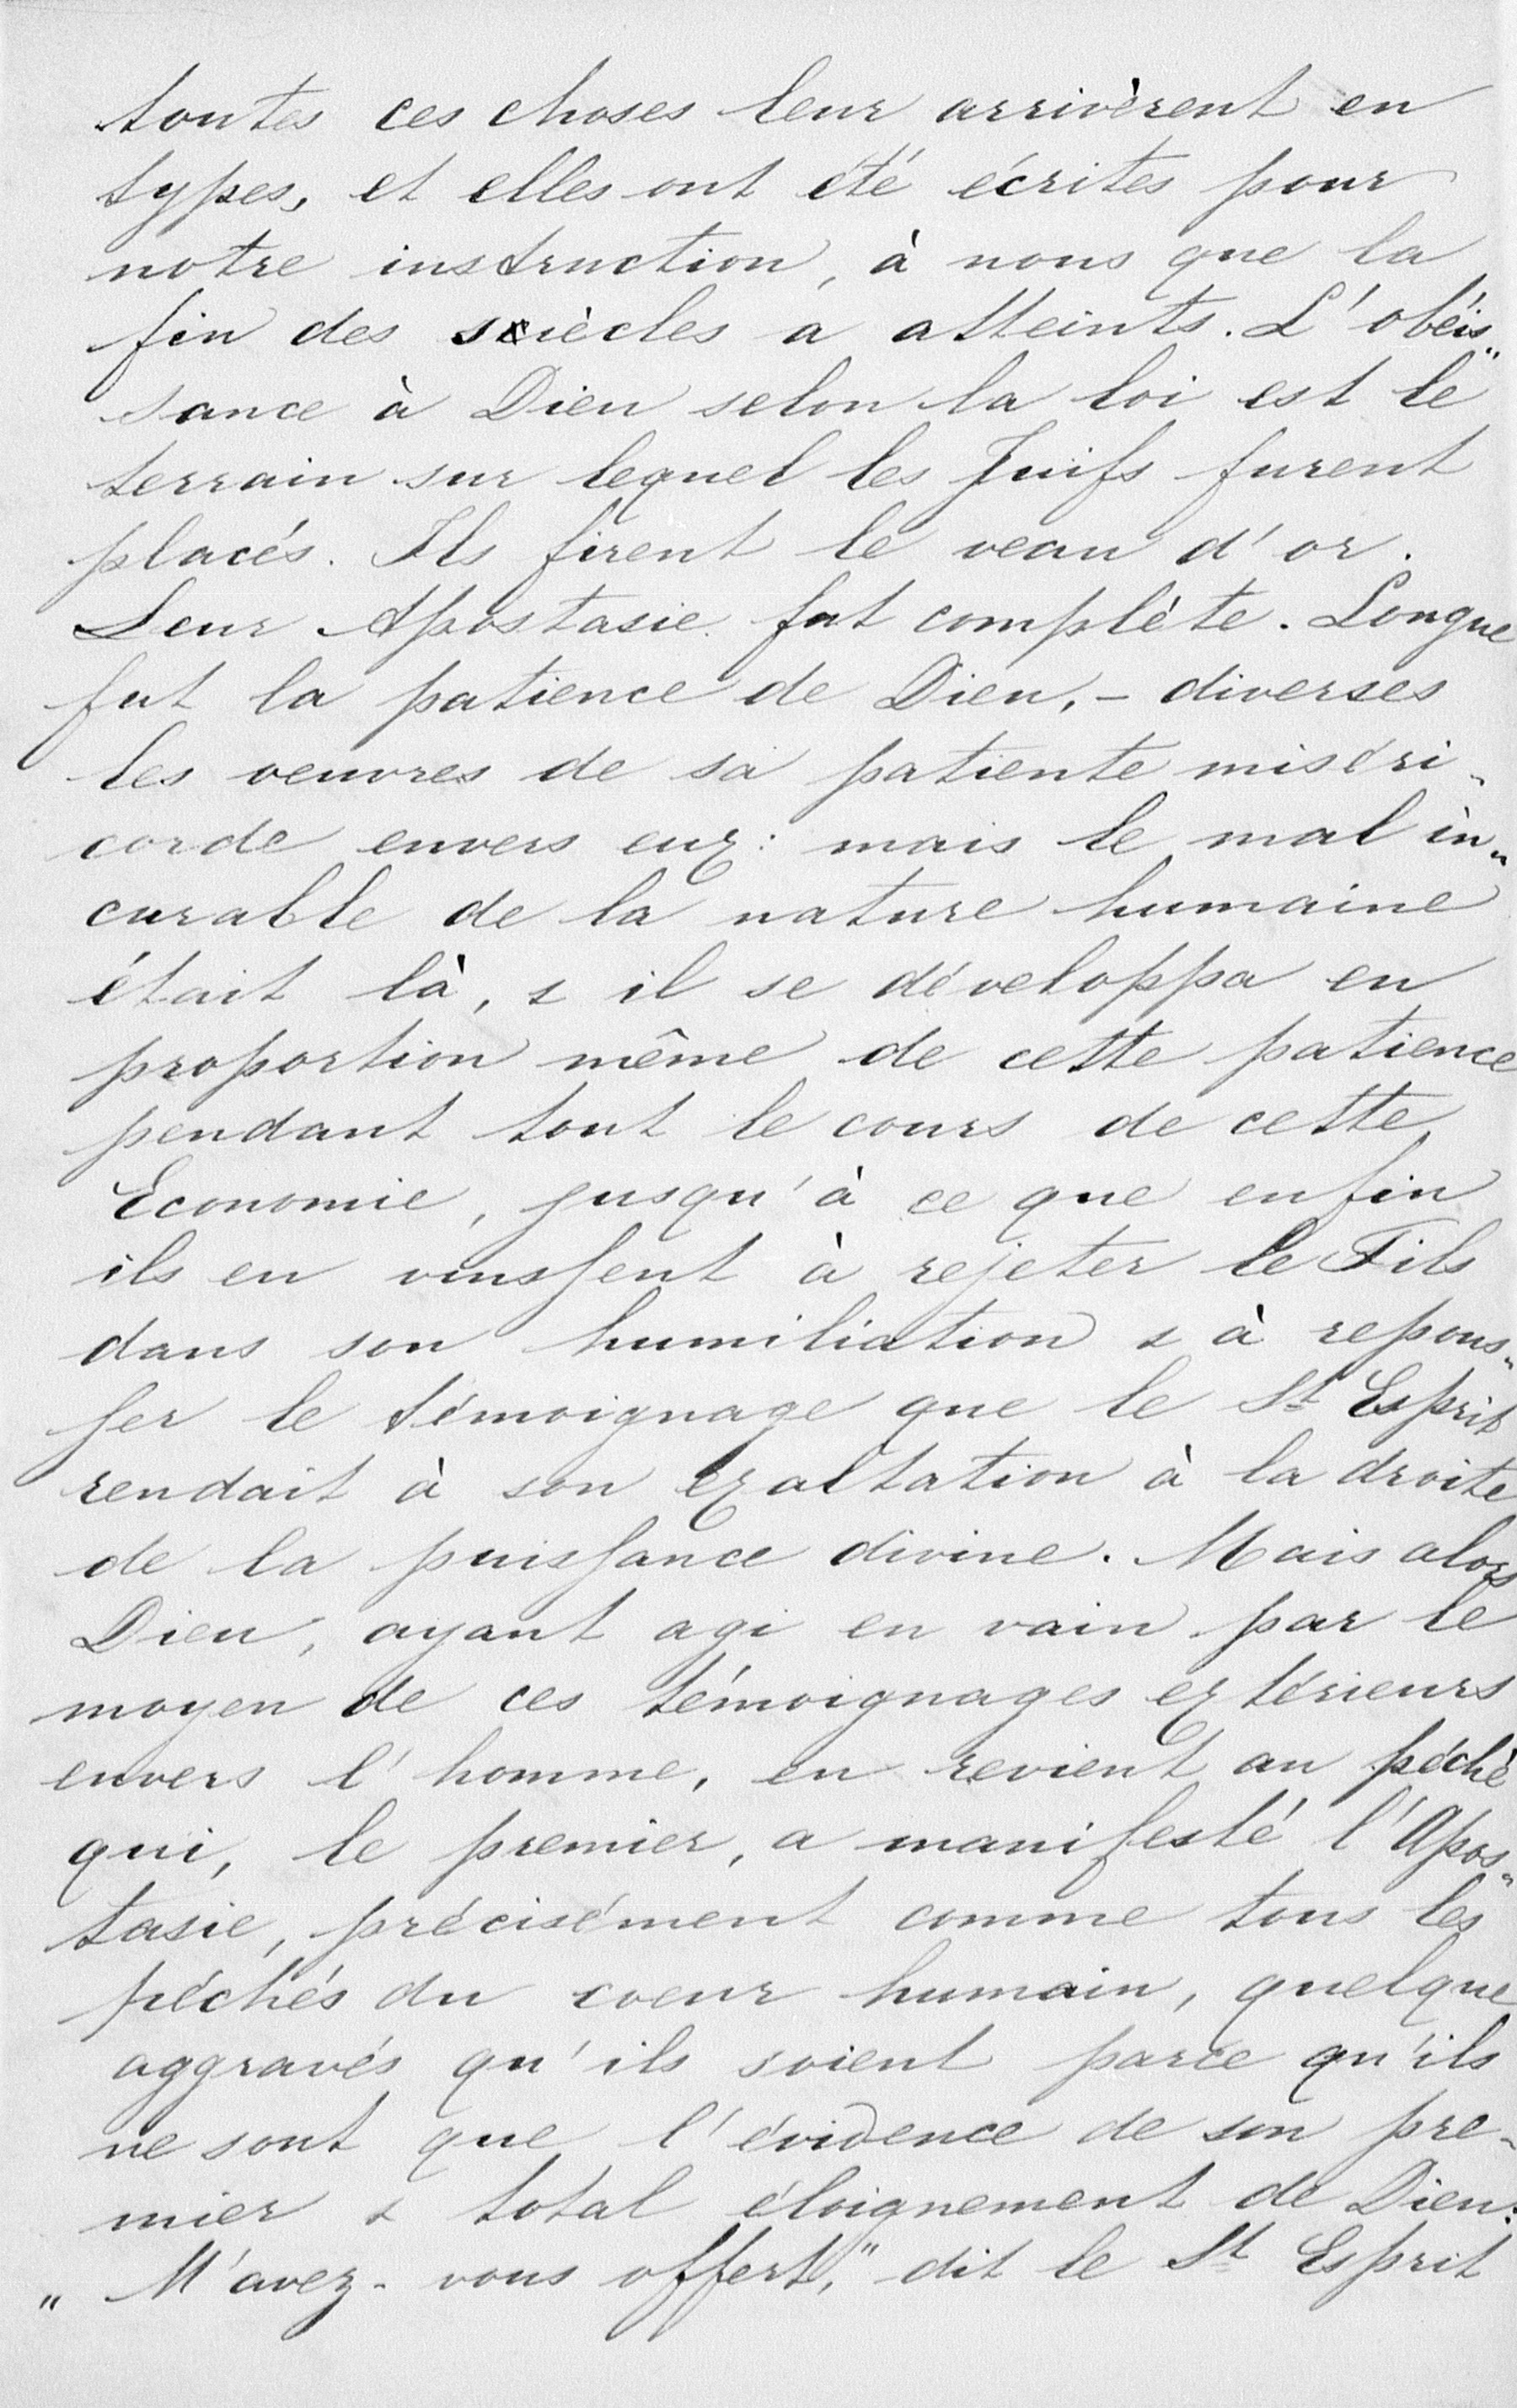 toutes ces choses leur arrivèrent en
types, et elles ont été écrites pour
notre instruction, à nous que la
fin des siècles a atteints. L'obéis„
sance à Dieu selon la loi est le
terrain sur lequel les Juifs furent
placés. Ils firent le veau d'or.
Leur Apostasie fut complète. Longue
fut la patience de Dieu, – diverses
les oeuvres de sa patiente miséri„
corde envers eux: mais le mal in„
curable de la nature humaine
était là, & il se développa en
proportion même de cette patience
pendant tout le cours de cette
Economie, jusqu'à ce que enfin
ils en vinssent à rejeter le Fils
dans son humiliation & à repous„
ser le témoignage que le St Esprit
rendait à son exaltation à la droite
de la puissance divine. Mais alors
Dieu, ayant agi en vain par le
moyen de ces témoignages extérieurs
envers l'homme, en revient au péché
qui, le premier, a manifesté l'Apos„
tasie, précisément comme tous les
péchés du coeur humain, quelque
aggravés qu'ils soient parce qu'ils
ne sont que l'évidence de son pre-
mier & total éloignement de Dieu:
„M'avez-vous offert," dit le St Esprit